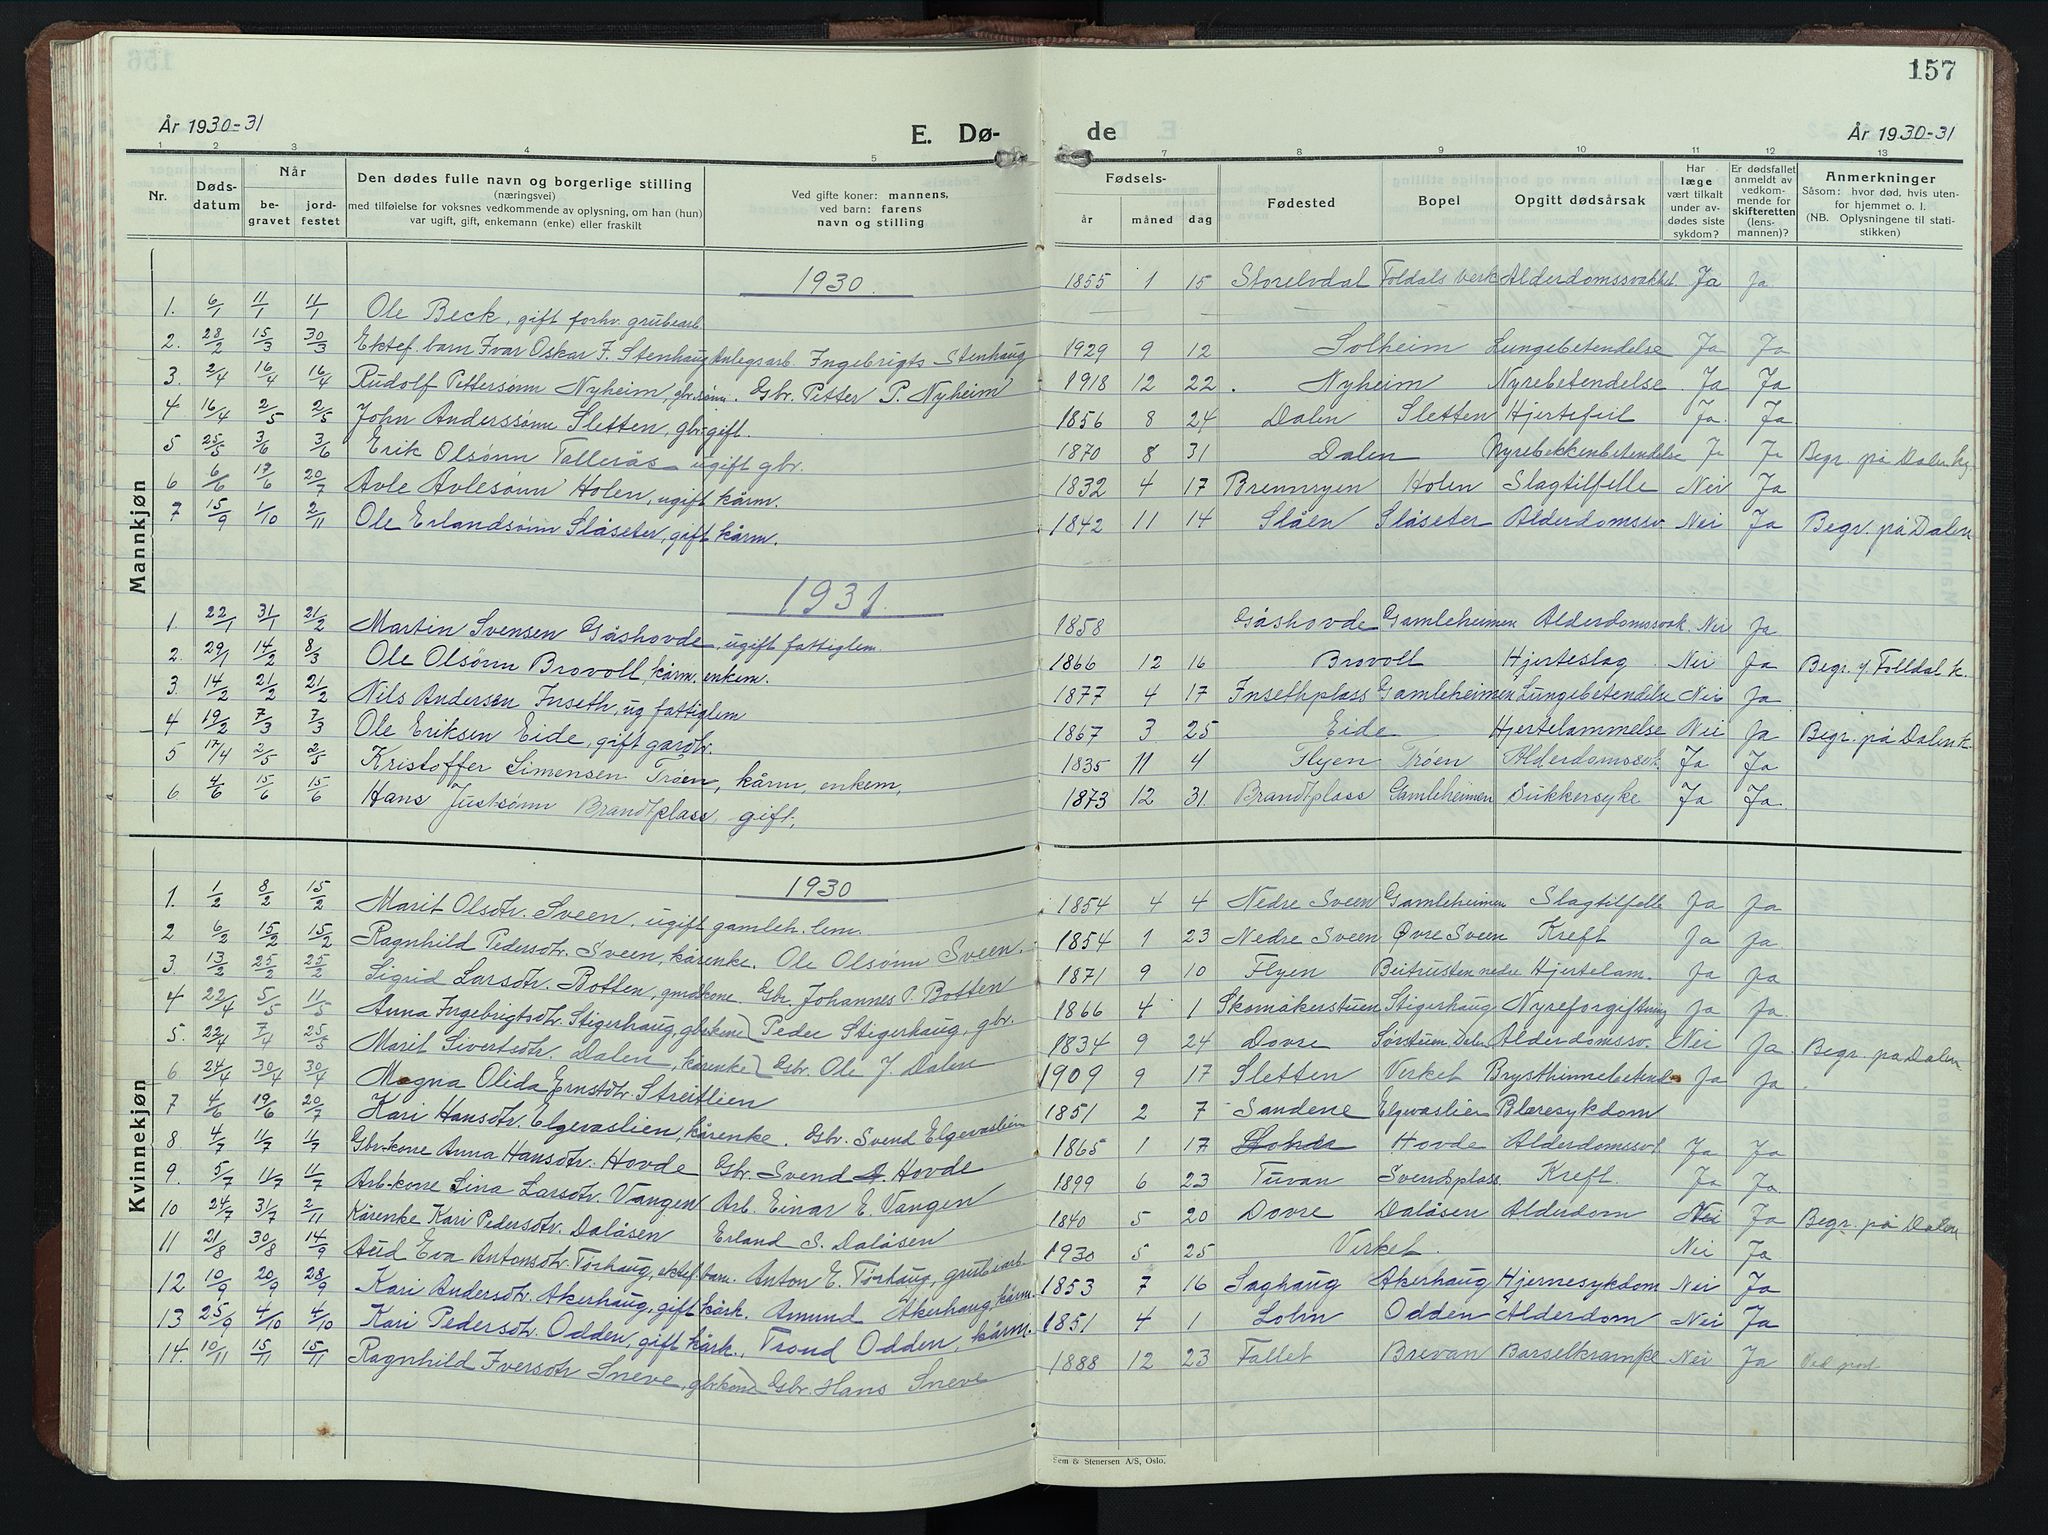 157
År 1930-31
E. Dø- de
År 1930-31
1 2 3 4 5 7 8 9 10 11 12 13
Nr. Dødsdatum Når begravet jordfestet
Den dødes fulle navn og borgerlige stilling
(næringsvei)
med tilføielse for voksnes vedkommende av oplysning, om han (hun)
var ugift, gift, enkemann (enke) eller fraskilt
Ved gifte koner: mannens,
ved barn: farens
navn og stilling
Fødsels- år måned dag
Fødested Bopel Opgitt dødsårsak
Har læge vært tilkalt under avdødes siste sykdom?
Er dødsfallet anmeldt av vedkommende for skifteretten (lensmannen)?
Anmerkninger
Såsom: hvor død, hvis utenfor hjemmet o. l.
(NB. Oplysningene til statistikken)
Mannkjøn
1930.
1. 6/1 11/1 11/1 Ole Beck, gift forhv. grubearb. 1855 1 15 Storelvdal Foldals verk Alderdomssvakhet Ja Ja
2. 28/2 15/3 30/3 Ektef. barn Ivar Oskar I. Stenhaug Anlegsarb. Ingebrigt Stenhaug 1929 9 12 Solheim Lungebetendelse Ja Ja
3. 2/4 16/4 16/4 Rudolf Pettersønn Nyheim, gbr.sønn. Gbr. Petter P. Nyheim 1918 12 22. Nyheim Nyrebetendelse Ja Ja
4 16/4 2/5 2/5 John Anderssønn Sletten, gbr. gift. 1856 8 24 Dalen Sletten Hjertefeil Ja. Ja
5 25/5 3/6 3/6 Erik Olsønn Tallerås ugift gbr. 1870 8 31 Dalen Nyrebekkenbetendelse Ja Ja Begr. på Dalen kg.
6 6/6 17/6 20/7 Avle Avlesønn Holen, ugift kårm. 1832 4 17 Brennryen Holen Slagtilfelle Nei Ja
7 15/9 1/10 2/11 Ole Erlandsønn Slåseter, gift kårm. 1842 11 14 Slåen Slåseter Alderdomssv. Nei Ja Begr. på Dalen
1931.
1. 22/1 31/1 21/2 Martin Svensen Gåshovde, ugift fattiglem. 1858 Gåshovde Gamleheimen Alderdomssvak. Nei Ja
2. 29/1 14/2 8/3 Ole Olsønn Brovoll, kårm. enkem. 1866 12 16 Brovoll Hjerteslag Nei Ja Begr. v. Folldal k.
3. 14/2 21/2 21/2 Nils Andersen Inseth, ug fattiglem 1877 4 17 Insethplass Gamleheimen Lungebetendelse Nei Ja
4 19/2 7/3 7/3 Ole Eriksen Eide, gift gardbr. 1867 3 25 Eide Hjertelammelse Nei Ja Begr. på Dalen k.
5 17/4 2/5 2/5 Kristoffer Simensen Trøen, kårm, enkem, 1835 11 4 Flyen Trøen Alderdomssvk. Ja Ja
6. 4/6 15/6 15/6 Hans Justsønn Brandtplass, gift, 1873 12 31. Brandtplass Gamleheimen Sukkersyke Ja Ja.
Kvinnekjøn
1930
1. 1/2 8/2 15/2 Marit Olsdtr. Sveen, ugift gamleh. lem. 1854 4 4 Nedre Sveen Gamleheimen Slagtilfelle Ja Ja
2 6/2 15/2 15/2 Ragnhild Pedersdtr. Sveen, kårenke. Ole Olsønn Sveen. 1854 1 23 Nedre Sveen Øvre Sveen Kreft Ja Ja
3. 13/2 25/2 25/2 Sigrid Larsdtr. Botten, gmdskone. Gbr. Johannes P. Botten 1871 9 10 Flyen Beitrusten nedre Hjertelam. Ja Ja
4 22/4 5/5 11/5 Anna Ingebrigtsdtr. Stigerhaug, gbrkone) Peder Stigerhaug, gbr. 1866 4 1 Skomakerstuen Stigerhaug Nyreforgiftning Ja Ja.
5. 22/4 7/4 25/5 Marit Sivertsdtr. Dalen, kårenke) Gbr. Ole J. Dalen 1834 9 24 Dovre Sørstuen, Dalen Alderdomssv. Nei Ja Begr. på Dalen
6 24/4 30/4 30/4 Magna Olida Ernstdtr. Streitlien 1909 9 17 Sletten Verket Brysthinnebetend Ja Ja
7 4/6 19/6 20/7 Kari Hansdtr. Elgevaslien, kårenke. Gbr. Svend Elgevaslien 1851 2 7 Sandene Elgevaslien Blæresykdom
8 4/7 11/7 11/7 Gbr-kone Anna Hansdtr. Hovde Gbr. Svend A. Hovde 1865 1 17 Hovde Alderdomssvk Ja Ja
9. 5/7 11/7 11/7 Arb-kone Lina Larsdtr. Vangen Arb. Einar E. Vangen 1899 6 23 Tuvan Svendsplass Kreft. Ja Ja
10 24/7 31/7 2/11 Kårenke Kari Pedersdtr. Dalåsen Erland S. Dalåsen 1840 5 20 Dovre Dalåsen Alderdom Nei Ja Begr. på Dalen
11 21/8 30/8 14/9 Aud Eva Antonsdtr. Tørhaug, ektef. barn. Anton E. Tørhaug, grubearb. 1930 5 25 Verket. Nei Ja
12 10/9 20/9 28/9 Kari Andersdtr. Akerhaug, gift kårk. Amund Akerhaug, kårm. 1853 7 16 Saghaug Akerhaug Hjernesykdom Nei Ja
13 25/9 4/10 4/10 Kari Pedersdtr. Odden, gift kårk., Trond Odden, kårm. 1851 4 1 Lohn Odden Alderdom Nei Ja
14. 10/11 15/11 15/11 Ragnhild Iversdtr Sneve, gbrkone) Gbr. Hans Sneve 1888 12 23 Fallet Brevan Barselkrampe Nei Ja Ved
Sem & Stenersen A/S, Oslo.